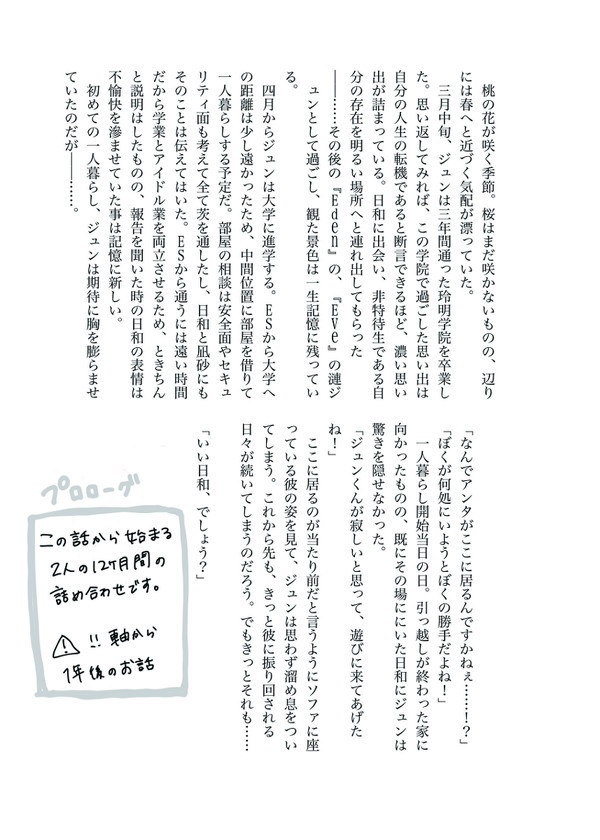 桃の花が咲く季節。桜はまだ咲かないものの、辺り
には春へと近づく気配が漂っていた。
三月中旬、ジュンは三年間通った玲明学院を卒業し
た。思い返してみれば、この学院で過ごした思い出は
自分の人生の転機であると断言できるほど、濃い思い
出が詰まっている。日和に出会い、非特待生である自
分の存在を明るい場所へと連れ出してもらった
――……その後の『Eden』の、『Eve』の漣ジ
ュンとして過ごし、観た景色は一生記憶に残ってい
る。
四月からジュンは大学に進学する。ESから大学へ
の距離は少し遠かったため、中間位置に部屋を借りて
一人暮らしする予定だ。部屋の相談は安全面やセキュ
リティ面も考えて全て茨を通したし、日和と凪砂にも
そのことは伝えてはいた。ESから通うには遠い時間
だから学業とアイドル業を両立させるため、ときちん
と説明はしたものの、報告を聞いた時の日和の表情は
不愉快を滲ませていた事は記憶に新しい。
初めての一人暮らし、ジュンは期待に胸を膨らませ
ていたのだが――……。
「なんでアンタがここに居るんですかねぇ……！？」
「ぼくが何処にいようとぼくの勝手だよね！」
一人暮らし開始当日の日。引っ越しが終わった家に
向かったものの、既にその場ににいた日和にジュンは
驚きを隠せなかった。
「ジュンくんが寂しいと思って、遊びに来てあげた
ね！」
ここに居るのが当たり前だと言うようにソファに座
っている彼の姿を見て、ジュンは思わず溜め息をつい
てしまう。これから先も、きっと彼に振り回される
日々が続いてしまうのだろう。でもきっとそれも……
「いい日和、でしょう？」
プロローグ
この話から始まる
2人の12ヶ月間の
詰め合わせです。
⚠ !! 軸から
1年後のお話